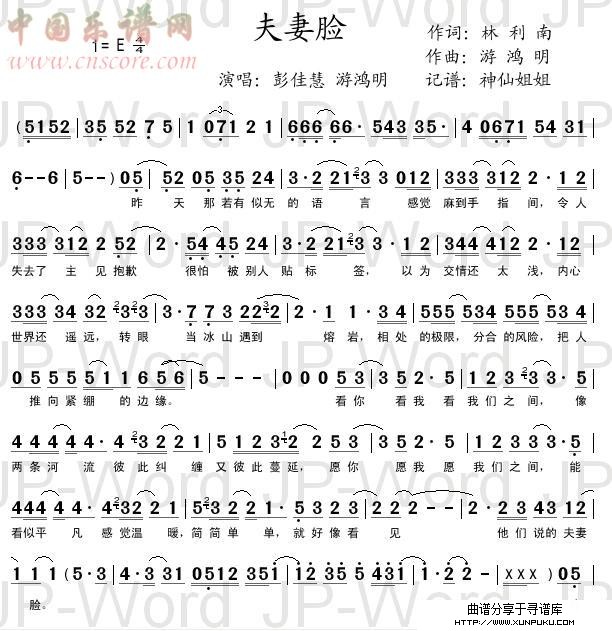 中国乐谱网
www.cnscore.com
夫妻脸
1= E 4/4
作词：林 利 南
作曲：游 鸿 明
演唱：彭佳慧 游鸿明
记谱：神仙姐姐
(5152 | 35 52 7 5 | 1 071 2 1 | 666 66· 543 35· | 4 0671 54 31 |
6--6 | 5--) 05 | 52 05 35 24 | 3·2 2123 3 012 | 333 312 2·12 |
昨 天 那若有似无的 语 言 感觉 麻到手 指间，令人
333 312 2 52 | 2· 54 45 24 | 3·2 2123 3·12 | 344 412 2·12 |
失去了 主 见抱歉 很怕 被别人 贴标 签，以为 交情还 太 浅，内心
333 34 32 2323 | 3·77 53 2232 | 2·1 1·34 | 555 534 555 534 |
世界还 遥远，转眼 当冰山遇到 熔岩，相处 的极限，分合 的风险，把人
0 5 55 51 1 656 | 5--- | 0 0 0 5 3 | 3 5 2 5 1 2 3 5 |
推向紧绷 的边缘。 看你 看我看 我们之间，像
4 4 4 4 4·4 | 43 2 2 1 | 5 1 2 32 2 53 | 3 5 2 5 1 2 3·5 |
两条河 流 彼此纠 缠 又彼此蔓延，愿你 愿我愿 我们之间，能
444 4 4·4 | 4323 2 2 1 | 52 2 2 1 | 5 3 2 3 | 2 2 2-- | 2·2 3 43 12 |
看似平 凡 感觉温 暖，简简单 单，就好像看 见 他们 说的夫妻
1 1 1 (5·3 | 4·3 31 0512 3351 | 1235 5 431 | 6--- | xxx) 05 |
脸。
JP-Word JP-Word JP-Word
曲谱分享于寻谱库
HTTP://WWW.XUNPUKU.COM